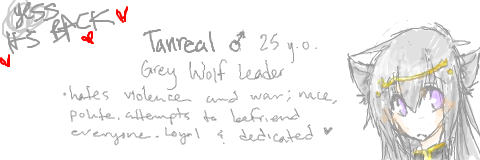 yess
it's BACK
Tanreal ♂ 25 y.o.
Grey Wolf Leader
• hates violence and war; nice,
polite. attempts to befriend
everyone. Loyal & dedicated ♥